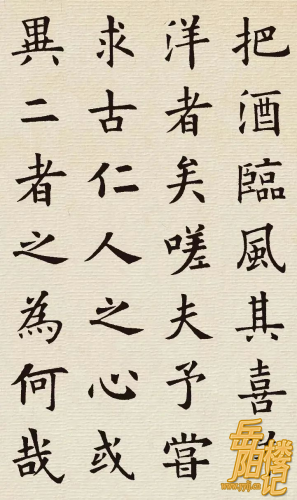 把酒臨風其喜
洋者矣嗟夫予嘗
求古仁人之心或
異二者之為何哉
岳陽楼记